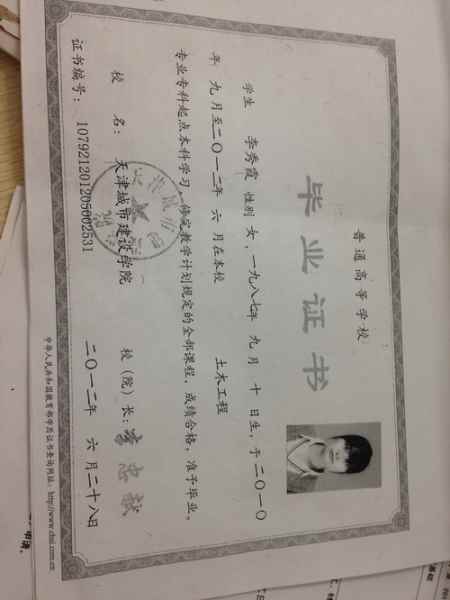 普通高等学校
毕业证书
学生 李秀霞 性别 女，一九八七年 九 月 十 日生，于二〇一〇
年 九 月至二〇一二年 六 月在本校 土木工程
专业专科起点本科学习，修完教学计划规定的全部课程，成绩合格，准予毕业。
校 名：天津城市建设学院 校（院）长：李忠献
证书编号：107921201205002531 二〇一二年 六 月二十八日
中华人民共和国教育部学历证书查询网址：http://www.chsi.com.cn